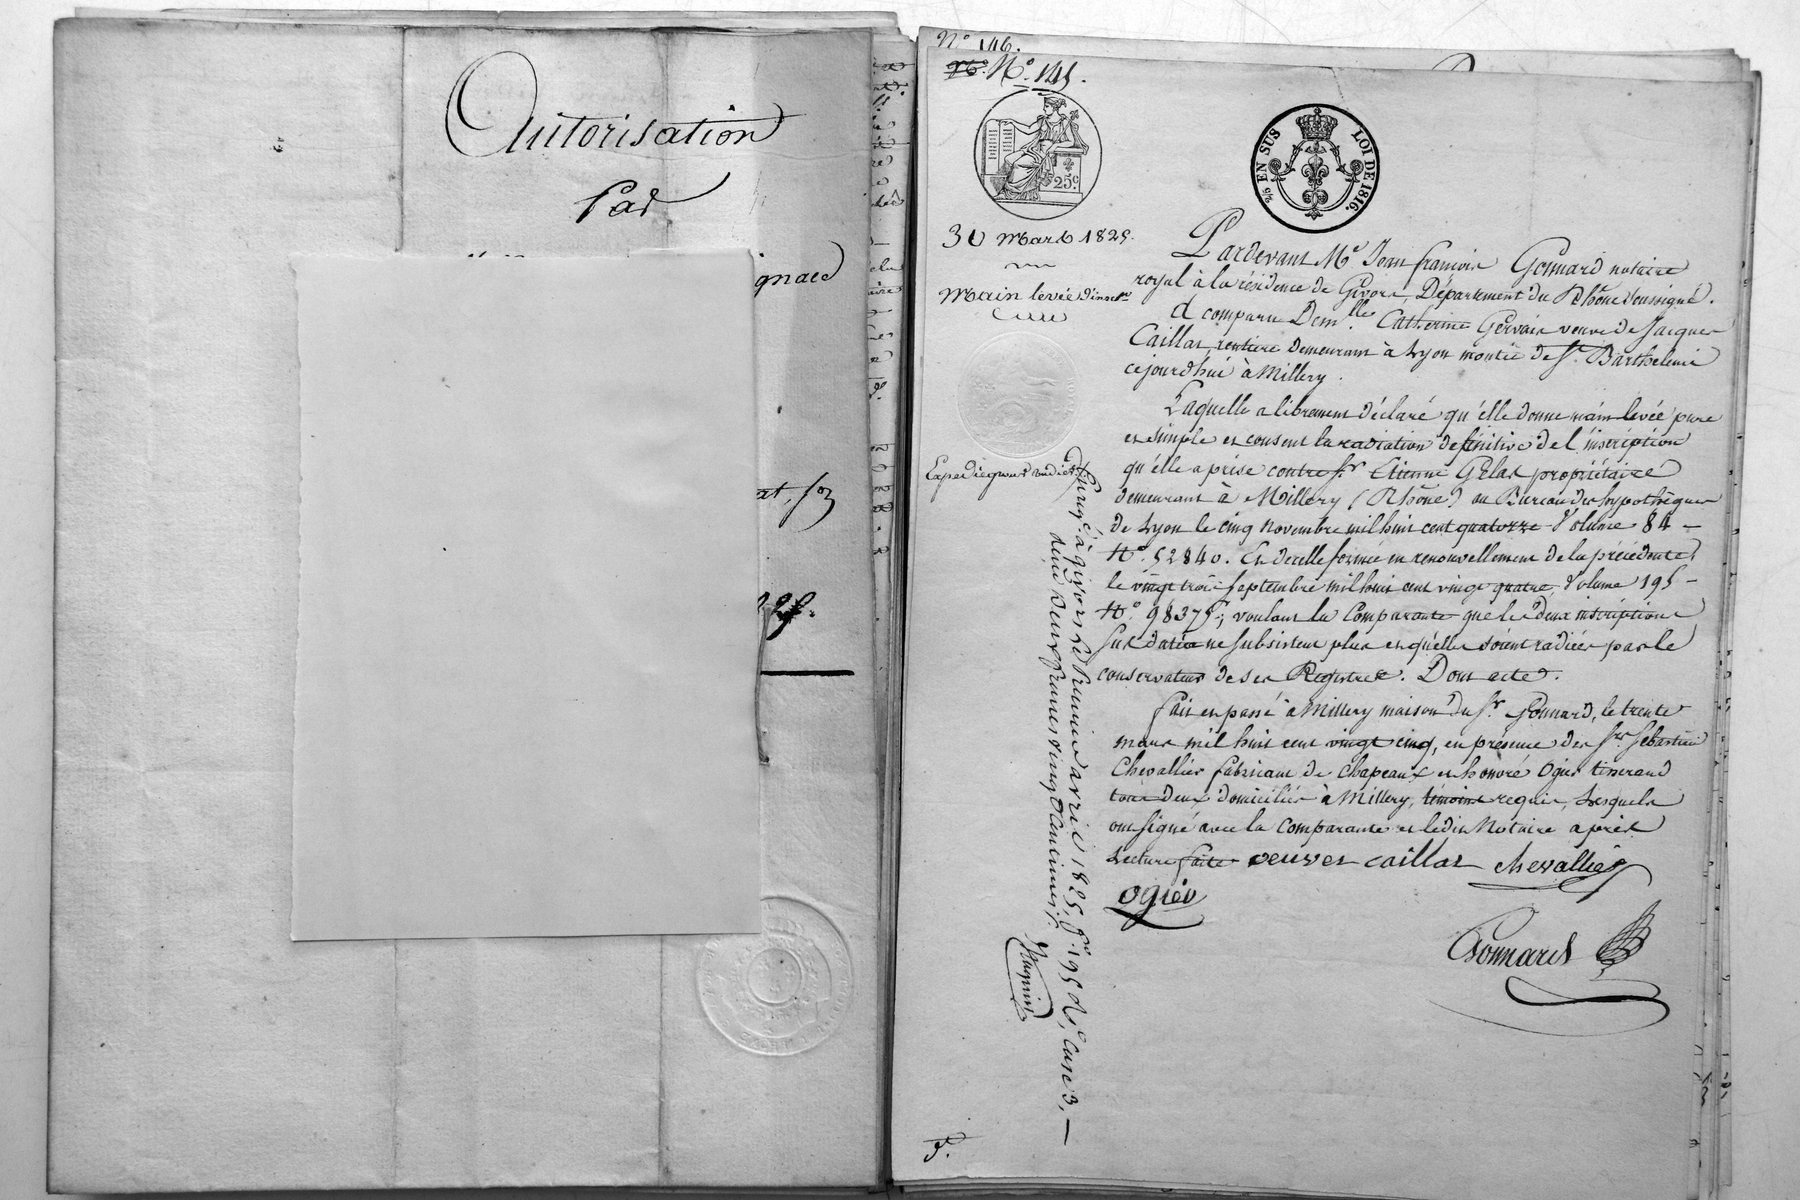 Autorisation
Par
ignard
at, sr
25.
N° 146.
N° 145.
25c
2/5 EN SUS LOI DE 1816.
30 Mars 1825.
Main levée d'inscr.on
Pardevant Me Jean françois Gonnard notaire
royal à la résidence de Givors, Département du Rhône soussigné.
A comparu Demlle Catherine Gervais veuve de Jacques
Caillat, rentiere demeurant à Lyon montée de St. Barthelemi
cejourdhui à Millery.
Laquelle a librement déclaré qu'elle donne main levée pure
et simple et consent la radiation definitive de l'inscription
qu'elle a prise contre sr Etienne Gelas propriétaire
demeurant à Millery (Rhône) au Bureau des hypothèques
de Lyon le cinq novembre mil huit cent quatorze Volume 84 -
N° 52840. Et de celle formée en renouvellement de la précédente,
le vingt trois septembre mil huit cent vingt quatre, Volume 195 -
N° 98375; voulant la Comparante que les deux inscriptions
sus datées ne subsistent plus et qu'elles soient radiées par le
conservateur de ses Registres. Dont acte.
fait et passé à Millery maison du sr. Gonnard, le trente
mars mil huit cent vingt cinq, en présence des srs Sébastien
Chevallier fabricant de chapeaux et honoré Ogier tisserand
tous deux domiciliés à Millery, témoins requis, Lesquels
ont signé avec la comparante et ledit Notaire après
Lecture faite veuves caillat chevallier
ogier
Gonnard
Expédié pour madite
Enregé à givors le Premier avril 1825, fo 195 Ro, case 3, —
reçu deux francs vingt centimes